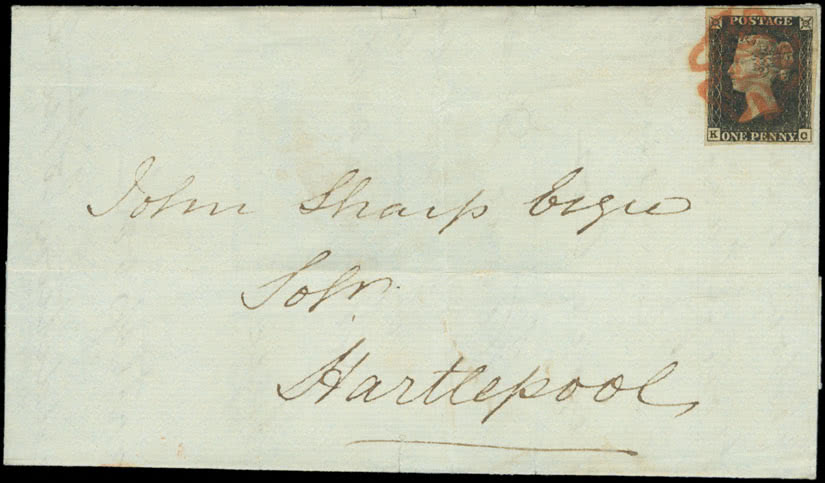 POSTAGE
K ONE PENNY C
John Sharp Esqre
Solr.
Hartlepool